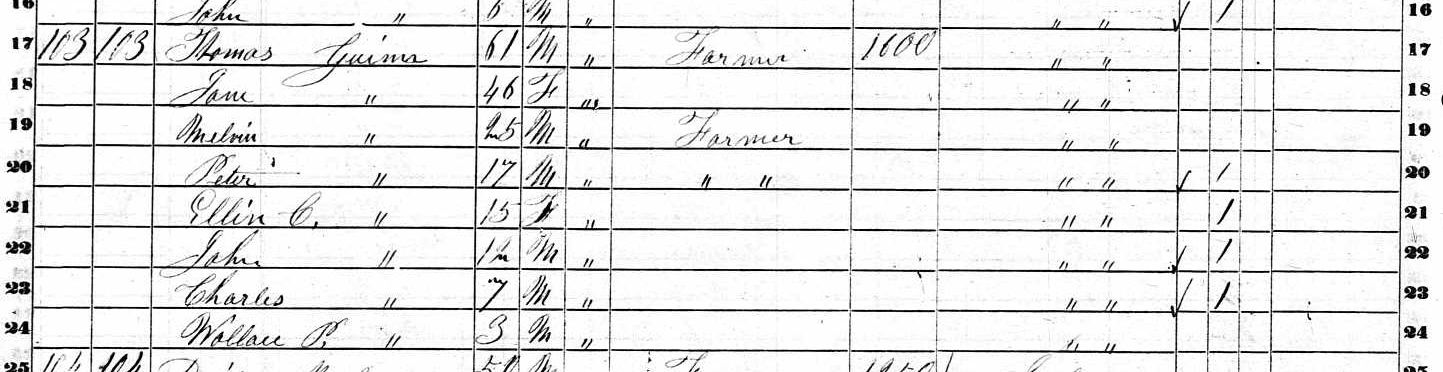 16 John " 6 M " " " ✓ 1 16
17 103 103 Thomas Guinn 61 M " Farmer 1600 " " 17
18 Jane " 46 F " " " 18
19 Melvin " 25 M " Farmer " " 19
20 Peter " 17 M " " " " " ✓ 1 20
21 Ellin C. " 15 F " " " 1 21
22 John " 12 M " " " ✓ 1 22
23 Charles " 7 M " " " ✓ 1 23
24 Wallace P. " 3 M " " " 24
25 104 104 M 25